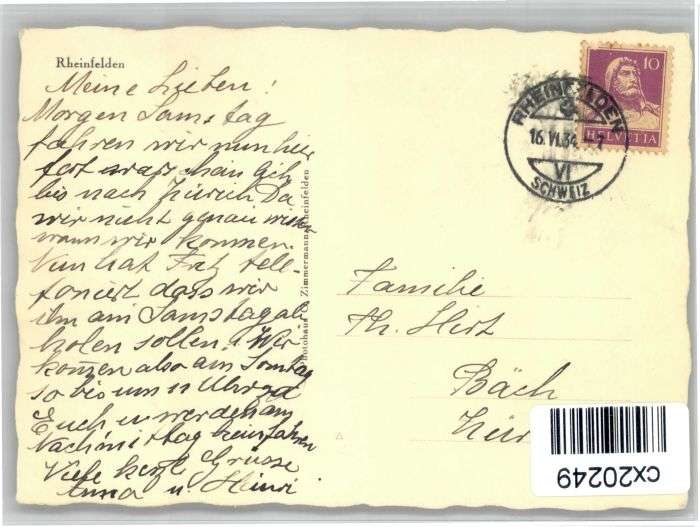 Rheinfelden
Meine Lieben!
Morgen Samstag
fahren wir nun hier
fort
bis nach Zürich Da
wir nicht genau wissen
wann wir kommen.
Nun hat Fritz tele-
foniert dass wir
ihn am Samstag ab
holen sollen. Wir
kommen also am Sonntag
so bis um 11 Uhr zu
Euch u. werden am
Nachmittag heimfahren
Viele herzl. Grüsse
Anna u. Heinri
Photohaus C. Zimmermann, Rheinfelden
10
HELVETIA
RHEINFELDEN
16.VI.34
VI
SCHWEIZ
Familie
Th. Hirt
Bäch
Zür
cx20249